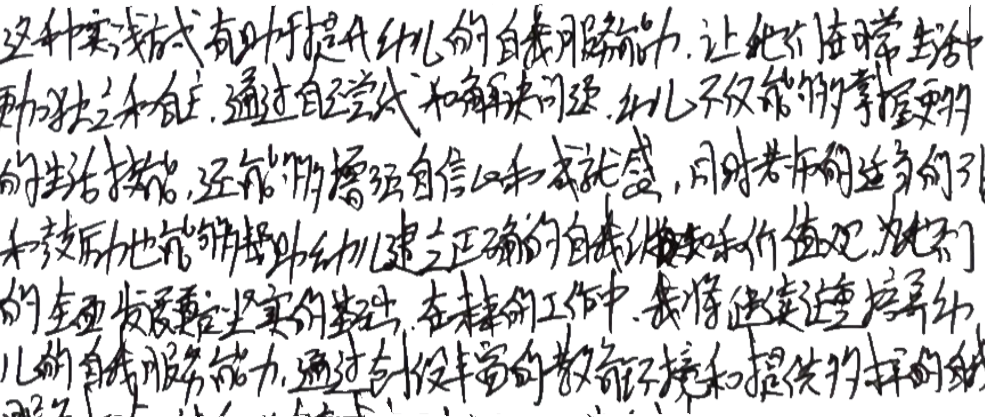 这种实践方式有助于提升幼儿的自我服务能力,让他们在日常生活中
更加独立和自主,通过自己尝试和解决问题,幼儿不仅能够掌握更多
的生活技能,还能够增强自信心和成就感,同时老师的适当的引
和鼓励也能够帮助幼儿建立正确的自我认知和价值观,为他们
的全面发展奠定坚实的基础,在未来的工作中,我将继续注重培养幼
儿的自我服务能力,通过创设丰富的教育环境和提供多样的自我